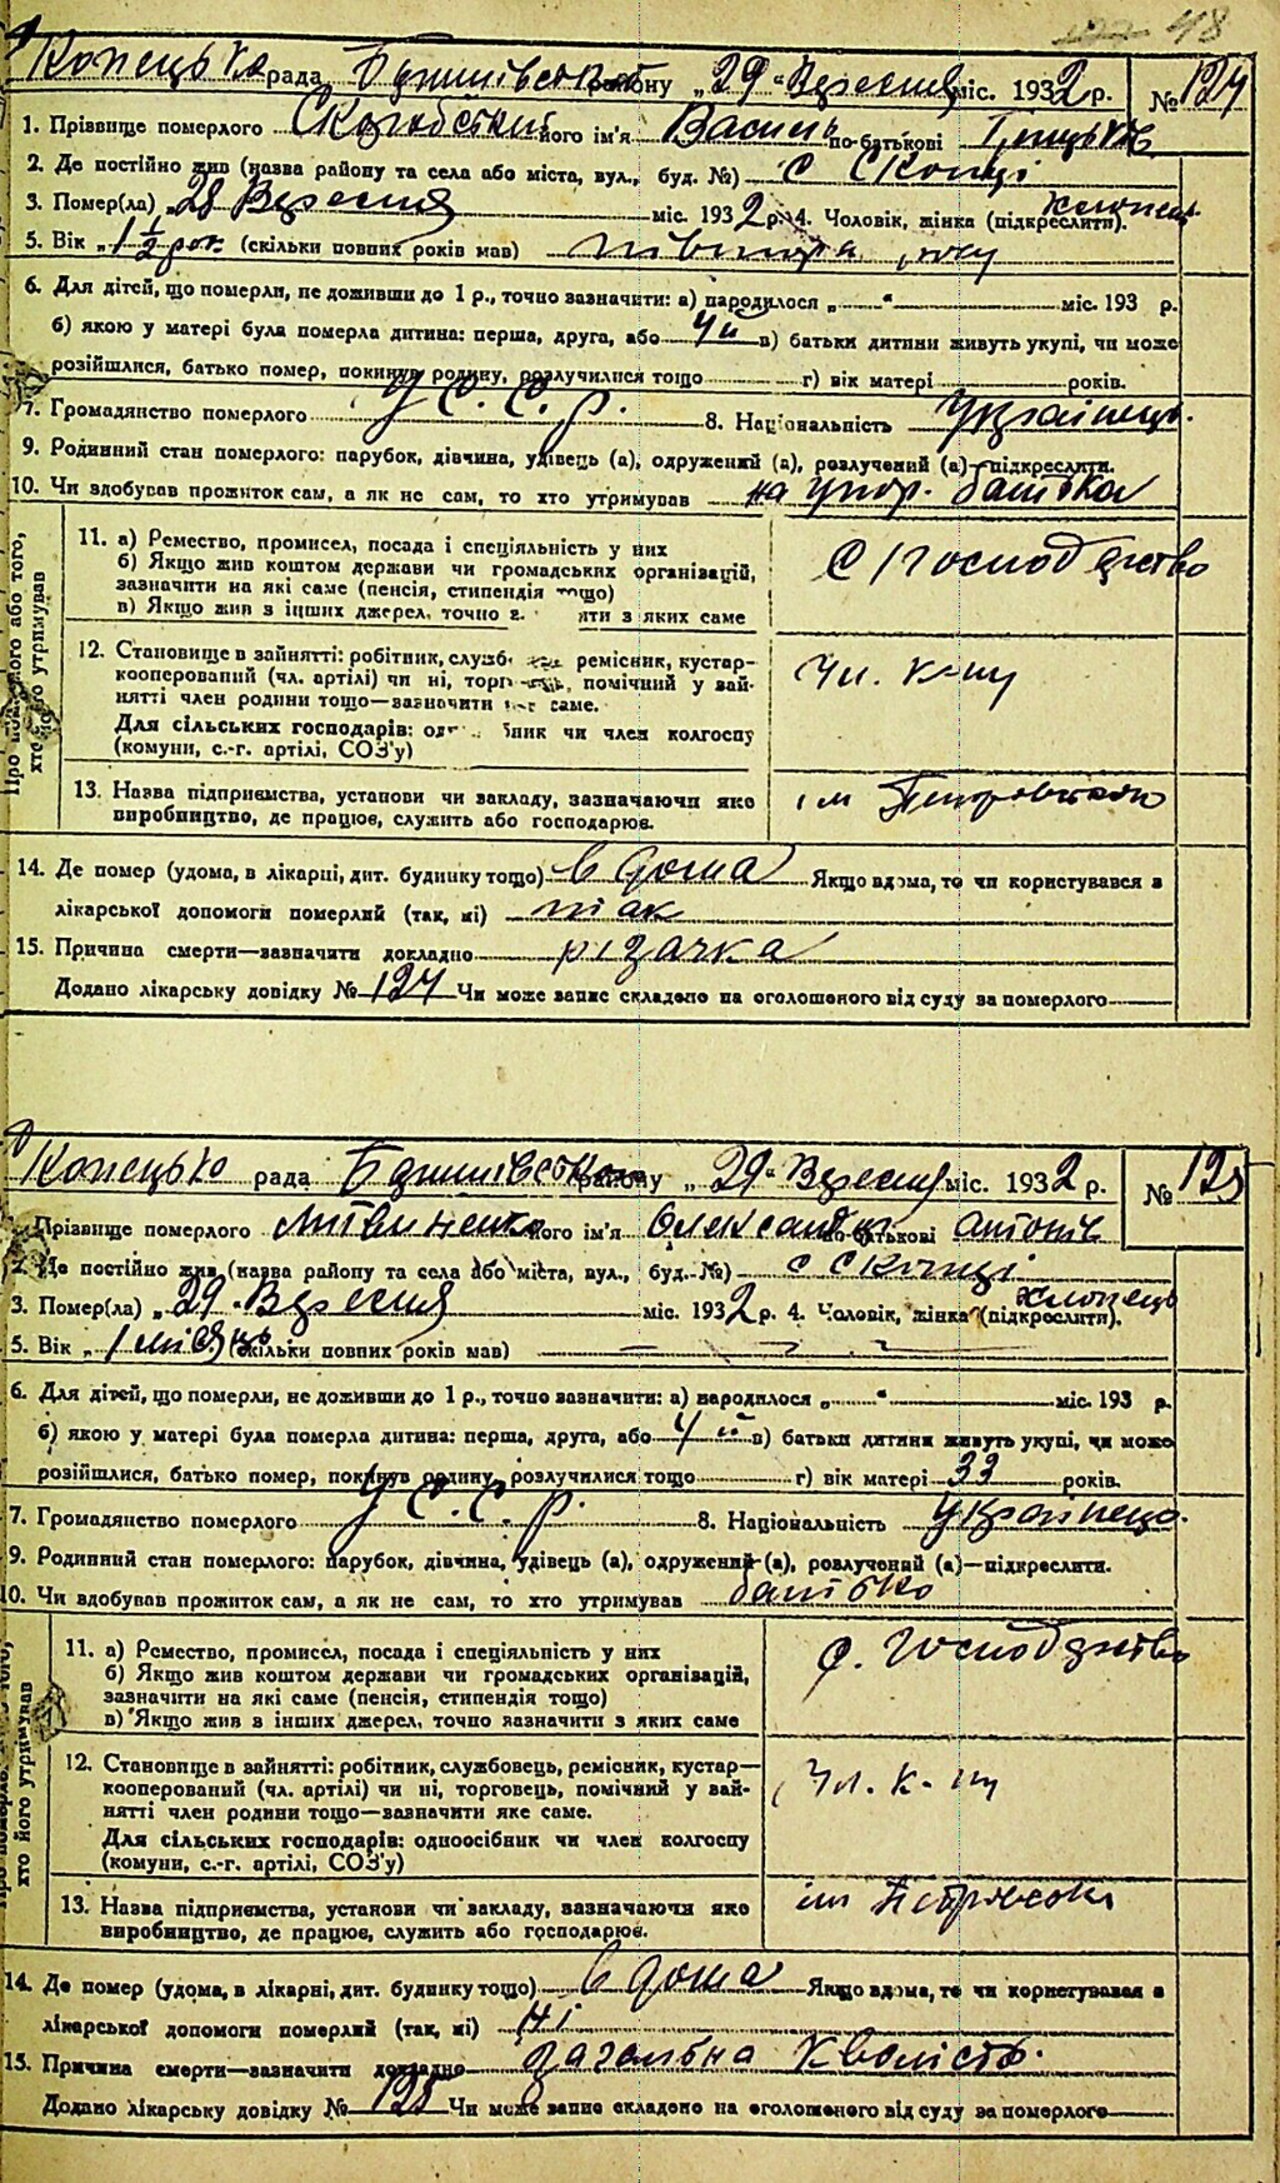 48
рада району „29“ Вересня міс. 1932 р. № 124
1. Прізвище померлого його ім'я Василь по-батькові
2. Де постійно жив (назва району та села або міста, вул., буд. №) с
3. Помер(ла) „28 Вересня міс. 1932 р. 4. Чоловік, жінка (підкреслити). хлопець
5. Вік „1 1/2 рок. (скільки повних років мав) півтора року
6. Для дітей, що померли, не доживши до 1 р., точно зазначити: а) народилося „ “ міс. 193 р.
б) якою у матері була померла дитина: перша, друга, або 4й в) батьки дитини живуть укупі, чи може
розійшлися, батько помер, покинув родину, розлучилися тощо г) вік матері років.
7. Громадянство померлого У С. С. р. 8. Національність Українець.
9. Родинний стан померлого: парубок, дівчина, удівець (а), одружений (а), розлучений (а)—підкреслити.
10. Чи здобував прожиток сам, а як не сам, то хто утримував на утр. батька
Про померлого або того, хто його утримував
11. а) Ремество, промисел, посада і спеціяльність у них
б) Якщо жив коштом держави чи громадських організацій,
зазначити на які саме (пенсія, стипендія тощо)
в) Якщо жив з інших джерел, точно яти з яких саме
С господарство
12. Становище в зайнятті: робітник, служб ремісник, кустар-
кооперований (чл. артілі) чи ні, торг помічний у зай-
нятті член родини тощо—зазначити саме.
Для сільських господарів: од ник чи член колгоспу
(комуни, с.-г. артілі, СОЗ'у)
Чл. к-пу
13. Назва підприємства, установи чи закладу, зазначаючи яке
виробництво, де працює, служить або господарює.
ім Петровського
14. Де помер (удома, в лікарні, дит. будинку тощо) в дома Якщо вдома, то чи користувався з
лікарської допомоги померлий (так, ні) так
15. Причина смерти—зазначити докладно різачка
Додано лікарську довідку № 124 Чи може запис складено на оголошеного від суду за померлого
рада району „29“ Вересня міс. 1932 р. № 125
Прізвище померлого Литвиненко його ім'я Олександр по-батькові Антонів
2. Де постійно жив (назва району та села або міста, вул., буд. №) с
3. Помер(ла) „29 Вересня міс. 1932 р. 4. Чоловік, жінка (підкреслити). хлопець
5. Вік „1 місяць (скільки повних років мав)
6. Для дітей, що померли, не доживши до 1 р., точно зазначити: а) народилося „ “ міс. 193 р.
б) якою у матері була померла дитина: перша, друга, або 4й в) батьки дитини живуть укупі, чи може
розійшлися, батько помер, покинув родину, розлучилися тощо г) вік матері 33 років.
7. Громадянство померлого У С. С. р. 8. Національність Українець.
9. Родинний стан померлого: парубок, дівчина, удівець (а), одружений (а), розлучений (а)—підкреслити.
10. Чи здобував прожиток сам, а як не сам, то хто утримував батько
хто його утримував
11. а) Ремество, промисел, посада і спеціяльність у них
б) Якщо жив коштом держави чи громадських організацій,
зазначити на які саме (пенсія, стипендія тощо)
в) Якщо жив з інших джерел, точно зазначити з яких саме
с. господарство
12. Становище в зайнятті: робітник, службовець, ремісник, кустар—
кооперований (чл. артілі) чи ні, торговець, помічний у зай-
нятті член родини тощо—зазначити яке саме.
Для сільських господарів: одноосібник чи член колгоспу
(комуни, с.-г. артілі, СОЗ'у)
Чл. к-пу
13. Назва підприємства, установи чи закладу, зазначаючи яке
виробництво, де працює, служить або господарює.
ім
14. Де помер (удома, в лікарні, дит. будинку тощо) в дома Якщо вдома, то чи користувався з
лікарської допомоги померлий (так, ні) ні
15. Причина смерти—зазначити докладно загальна кволість.
Додано лікарську довідку № 125 Чи може запис складено на оголошеного від суду за померлого